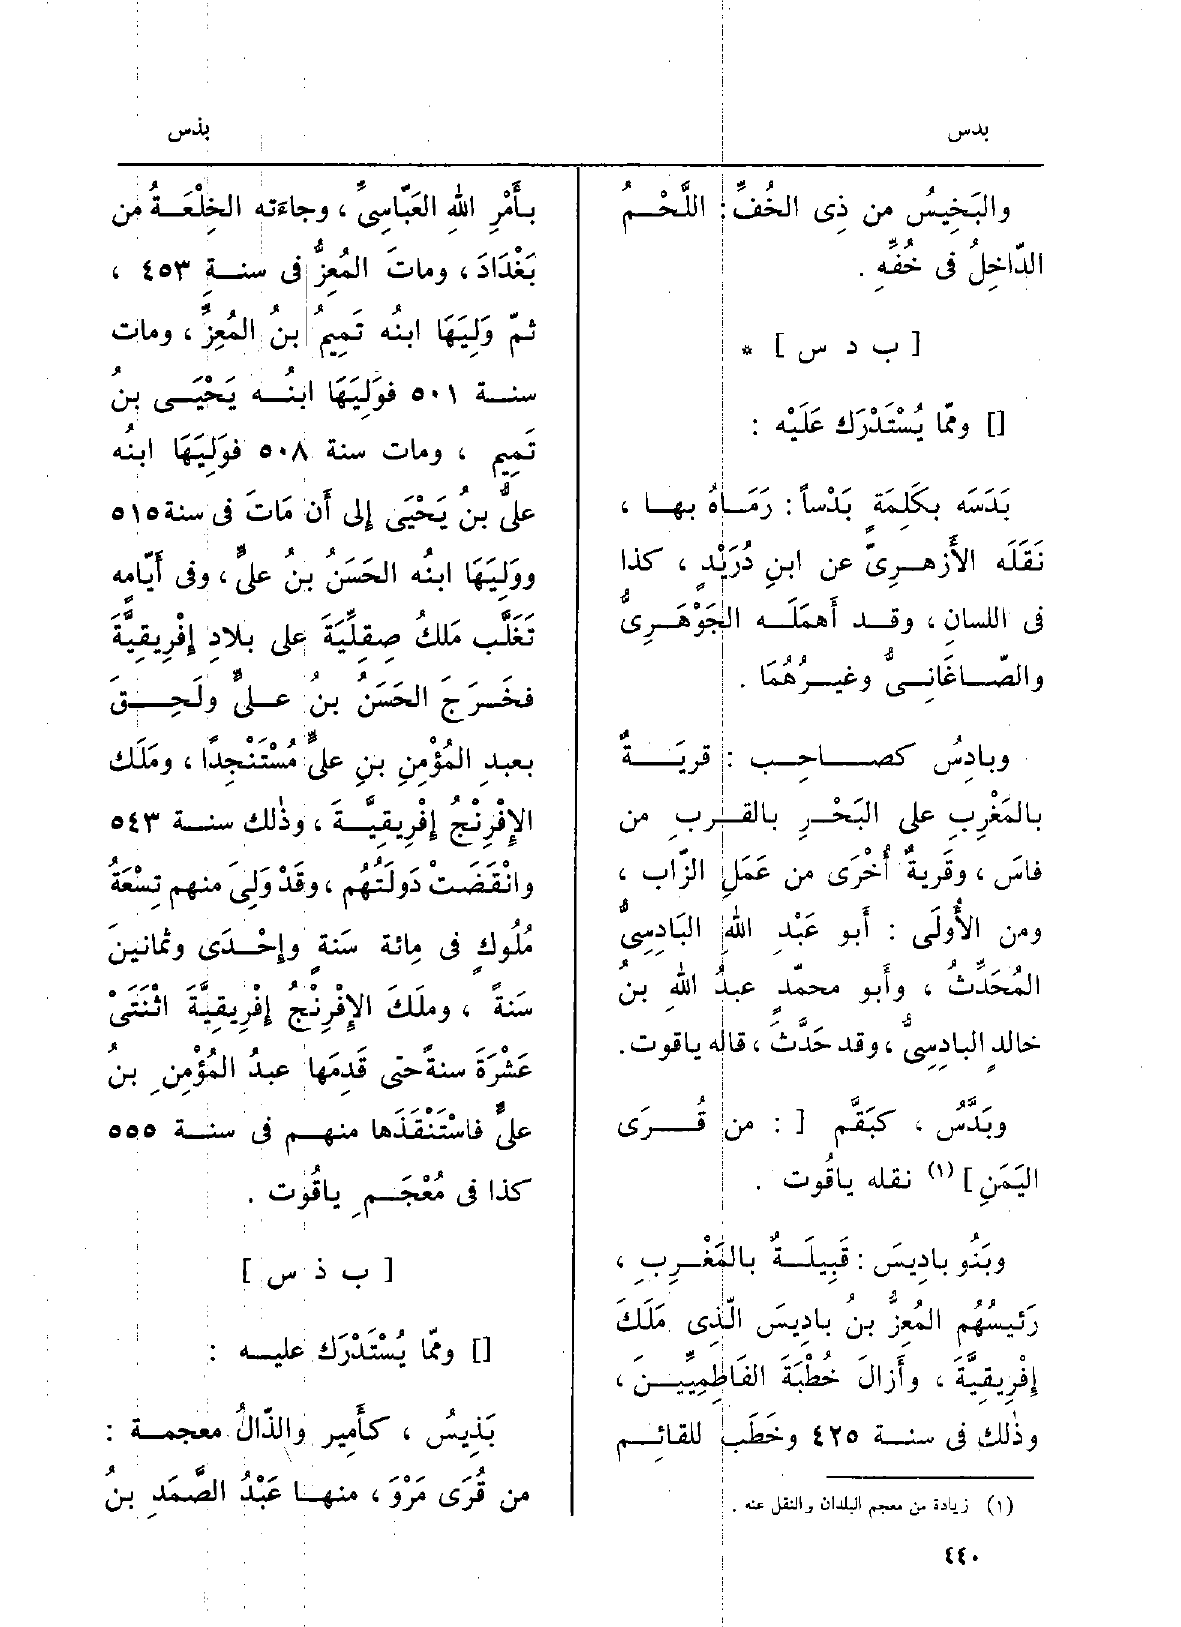 بدس
بذس
والبَخِيسُ من ذِى الخُفِّ : اللَّحْـمُ
الدّاخِلُ فى خُفِّه .
[ ب د س ] *
[] وممّا يُسْتَدْرَك عَلَيْه :
بَدَسَه بكَلِمَةٍ بَدْساً : رَمَـاهُ بهـا ،
نَقَلَه الأَزهـرِىّ عن ابنِ دُرَيْدٍ ، كذا
فى اللسان ، وقـد أَهمَلَـه الجَوْهَـرِىُّ
والصّـاغَانِـىُّ وغيـرُهُمَا .
وبادِسُ كصـاحِـب : قريَـةٌ
بالمَغْرِب على البَحْـرِ بالقـرب من
فاسَ ، وقريةٌ أُخْرَى من عَمَلِ الزّاب ،
ومن الأُولَى : أَبو عَبْدِ اللهِ البَادِسِىُّ
المُحَدِّثُ ، وأَبو محمّدٍ عبدُ اللهِ بنُ
خالدٍ البادِسِىُّ ، وقد حَدَّثَ ، قاله ياقوت .
وبَدَّسُ ، كبَقَّم [ : من قُـرَى
اليَمَنِ ] (١) نقله ياقُوت .
وبَنُو بادِيسَ : قَبِيلَـةٌ بالمَغْـرِب ،
رَئِيسُهُم المُعِزُّ بنُ بادِيسَ الَّذِى مَلَكَ
إِفْرِيقِيَّةَ ، وأَزالَ خُطْبَةَ الفَاطِمِيِّيـنَ ،
وذٰلك فى سنـة ٤٢٥ وخَطَب للقائِـم
(١) زيادة من معجم البلدان والنقل عنه .
بـأَمْرِ اللهِ العَبّاسِىِّ ، وجاءَته الخِلْعَـةُ من
بَغْدَادَ ، وماتَ المُعِزُّ فى سنـةِ ٤٥٣ ،
ثمّ وَلِيَهَا ابنُه تَمِيمُ بنُ المُعِزِّ ، ومات
سنـة ٥٠١ فوَلِيَهَا ابنُـه يَحْيَـى بنُ
تَمِيمٍ ، ومات سنة ٥٠٨ فوَلِيَهَا ابنُه
علىُّ بنُ يَحْيَى إِلى أَن مَاتَ فى سنة ٥١٥
ووَلِيَهَا ابنُه الحَسَنُ بنُ علىٍّ ، وفى أَيّامِه
تَغَلَّب مَلكُ صِقِلِّيَةَ على بلادِ إِفْرِيقِيَّةَ
فخَـرَجَ الحَسَنُ بنُ علـىٍّ ولَحِـقَ
بعبدِ المُؤْمِنِ بنِ علىٍّ مُسْتَنْجِدًا ، ومَلَك
الإِفْرِنْجُ إِفْرِيقِيَّـةَ ، وذٰلك سنـة ٥٤٣
وانْقَضَتْ دَولَتُهُم ، وقَدْ وَلِىَ منهم تِسْعَةُ
مُلُوكٍ فى مائة سَنَةٍ وإِحْـدَى وثمانينَ
سَنَةً ، وملَكَ الإِفْرِنْجُ إِفْرِيقِيَّةَ اثْنَتَىْ
عَشْرَةَ سنةً حتى قَدِمَها عبدُ المُؤْمِنِ بنُ
علىٍّ فاسْتَنْقَذَها منهـم فى سنـة ٥٥٥
كذا فى مُعْجَـمِ ياقُوت .
[ ب ذ س ]
[] وممّا يُسْتَدْرَك عليـه :
بَذِيسُ ، كأَميرٍ والذّالُ معجمـة :
من قُرَى مَرْوَ ، منهـا عَبْدُ الصَّمَدِ بنُ
٤٤٠